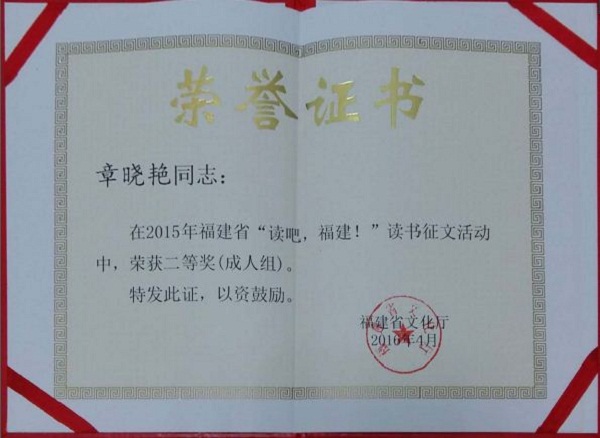 荣誉证书
章晓艳同志：
在2015年福建省“读吧，福建！”读书征文活动
中，荣获二等奖(成人组)。
特发此证，以资鼓励。
福建省文化厅
2016年4月